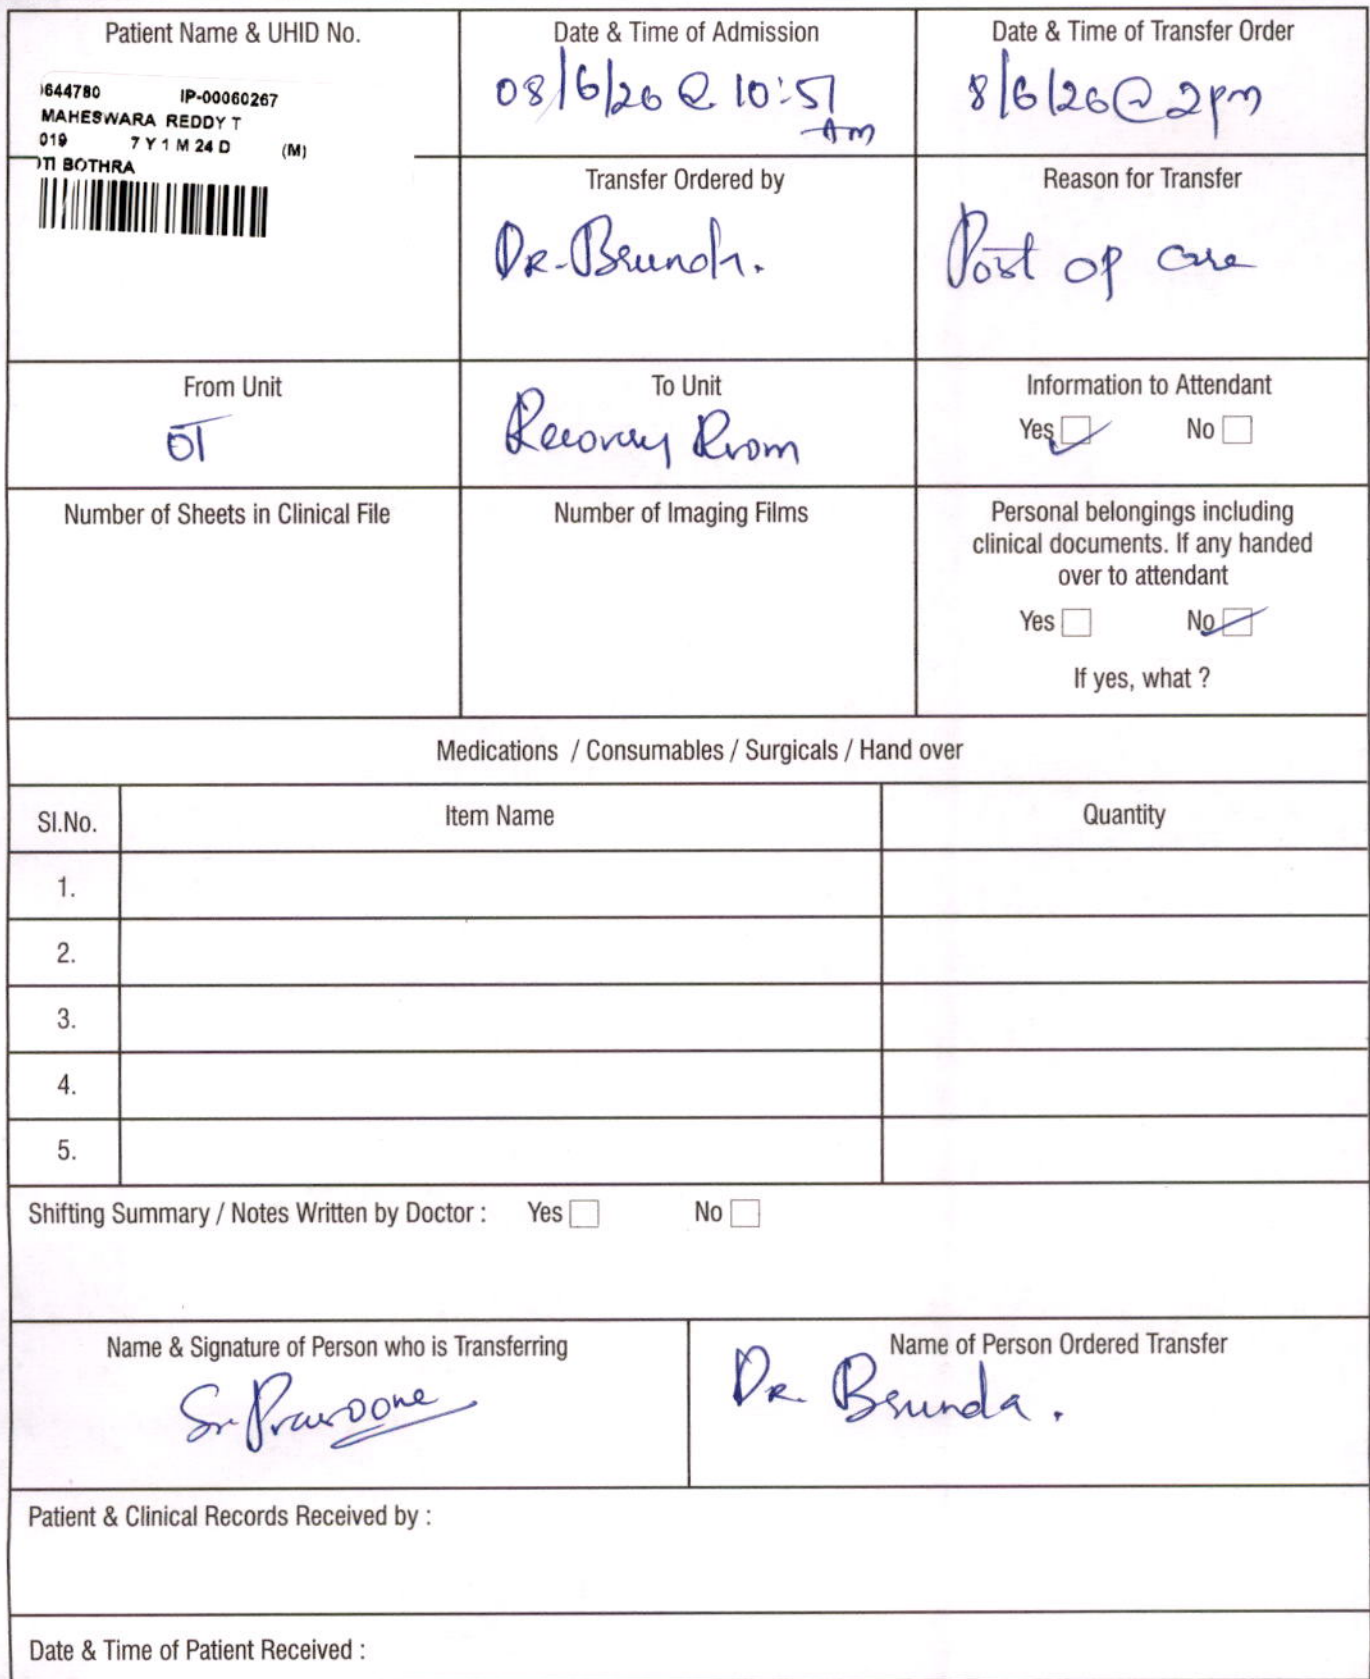 Patient Name & UHID No.
644780 IP-00060267
MAHESWARA REDDY T
019 7 Y 1 M 24 D (M)
OTI BOTHRA
Date & Time of Admission
08/6/26 @ 10:51
Am
Date & Time of Transfer Order
8/6/26 @ 2pm
Transfer Ordered by
Dr. Brunda.
Reason for Transfer
Post op care
From Unit
OT
To Unit
Recovery Room
Information to Attendant
Yes No
Number of Sheets in Clinical File
Number of Imaging Films
Personal belongings including
clinical documents. If any handed
over to attendant
Yes No
If yes, what ?
Medications / Consumables / Surgicals / Hand over
Sl.No. Item Name Quantity
1.
2.
3.
4.
5.
Shifting Summary / Notes Written by Doctor : Yes No
Name & Signature of Person who is Transferring
Sr.
Name of Person Ordered Transfer
Dr. Brunda.
Patient & Clinical Records Received by :
Date & Time of Patient Received :